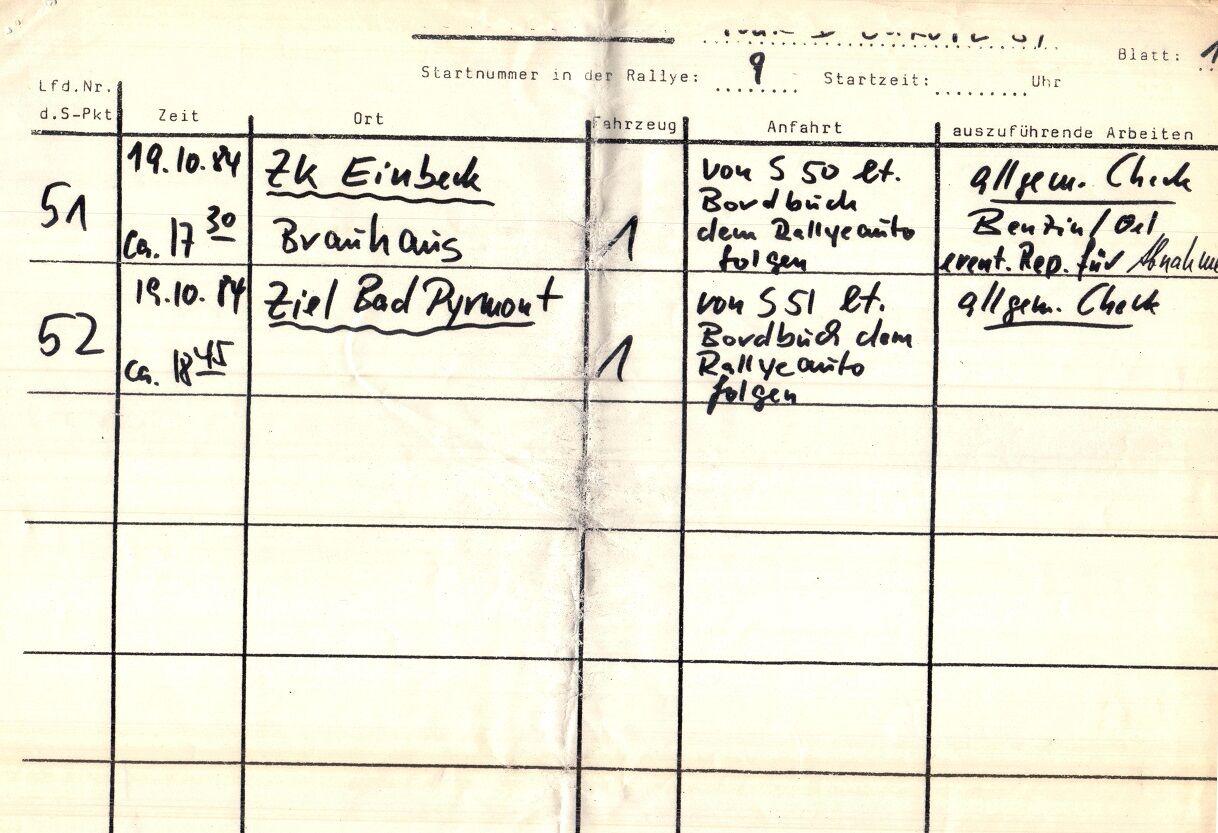 Blatt: 1
Startnummer in der Rallye: 9 Startzeit: Uhr
Lfd.Nr.
d.S-Pkt Zeit Ort Fahrzeug Anfahrt auszuführende Arbeiten
51
19.10.84
ca. 17 30
ZK Einbeck
Brauhaus
1
von S 50 lt.
Bordbuch
dem Rallyeauto
folgen
allgem. Check
Benzin/Oel
event. Rep. für Abnahme
52
19.10.84
ca. 18 45
Ziel Bad Pyrmont
1
von S 51 lt.
Bordbuch dem
Rallyeauto
folgen
allgem. Check